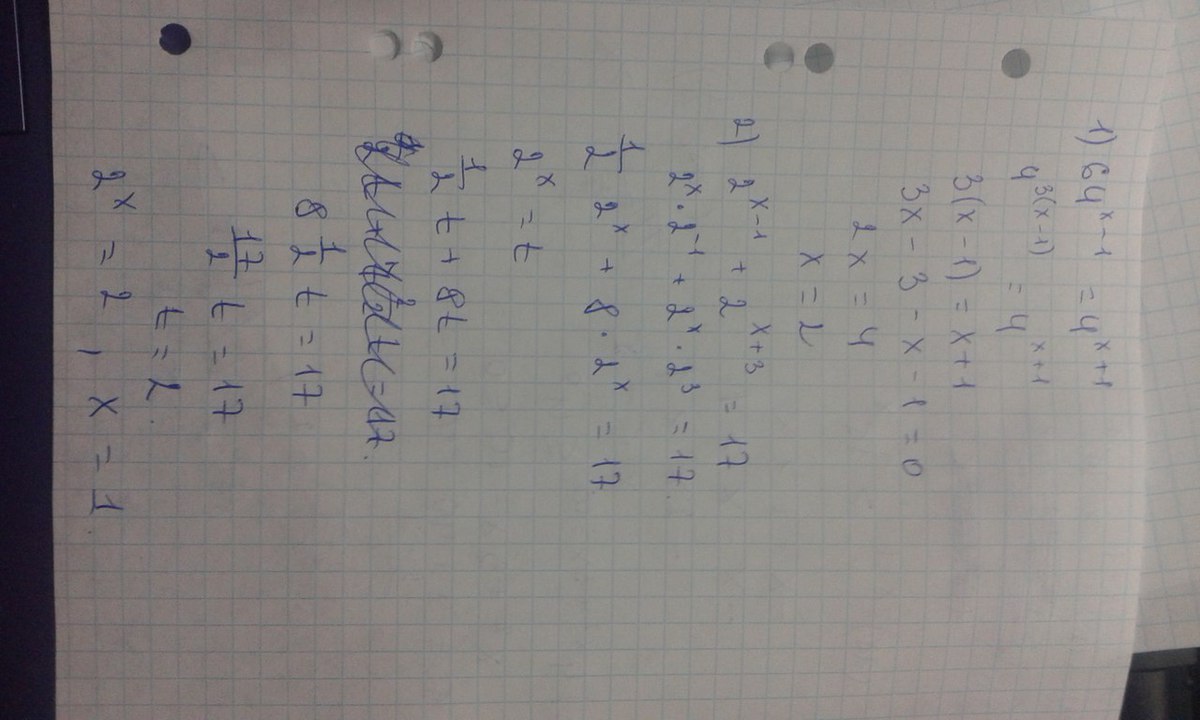 1) 64^(x-1) = 4^(x+1)
4^(3(x-1)) = 4^(x+1)
3(x-1) = x+1
3x - 3 - x - 1 = 0
2x = 4
x = 2
2) 2^(x-1) + 2^(x+3) = 17
2^x · 2^(-1) + 2^x · 2^3 = 17
1/2 2^x + 8 · 2^x = 17
2^x = t
1/2 t + 8t = 17
8 1/2 t = 17
17/2 t = 17
t = 2
2^x = 2, x = 1